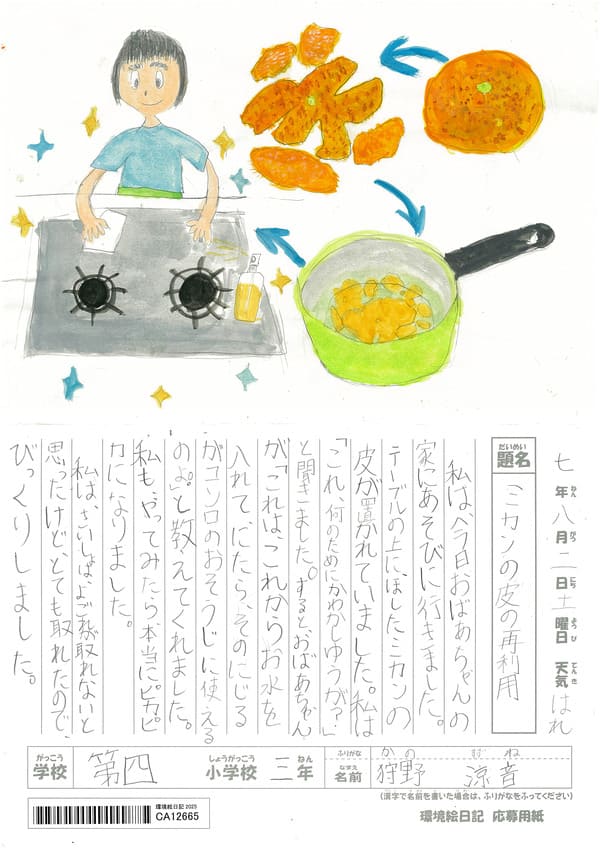 七年八月二日土曜日 天気はれ
ねん がつ にち ようび てんき
だいめい
題名
ミカンの皮の再利用
私は今日おばあちゃんの
家にあそびに行きました。
テーブルの上に、ほしたミカンの
皮が置かれていました。私は
「これ、何のためにかわかしゆうが？」
と聞きました。すると、おばあちゃん
が「これは、これからお水を
入れてにたら、そのにじる
がコンロのおそうじに使える
のよ。」と教えてくれました。
私も、やってみたら本当にピカピ
カになりました。
私は、さいしょは、よごれが取れないと
思ったけど、とても取れたので、
びっくりしました。
がっこう しょうがっこう ねん ふりがな かの すずね
学校 第四 小学校 三年 名前 狩野 涼音
なまえ
(漢字で名前を書いた場合は、ふりがなをふってください)
環境絵日記 2025
CA12665
環境絵日記 応募用紙